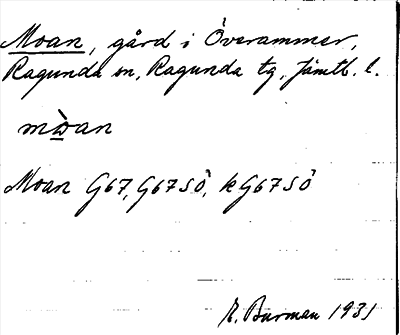 Moan, gård i Överammer,
Ragunda sn, Ragunda tg, Jämtl. l.
mὼ̲an
Moan G67, G67SÖ, kG67SÖ
R. Burman 1931